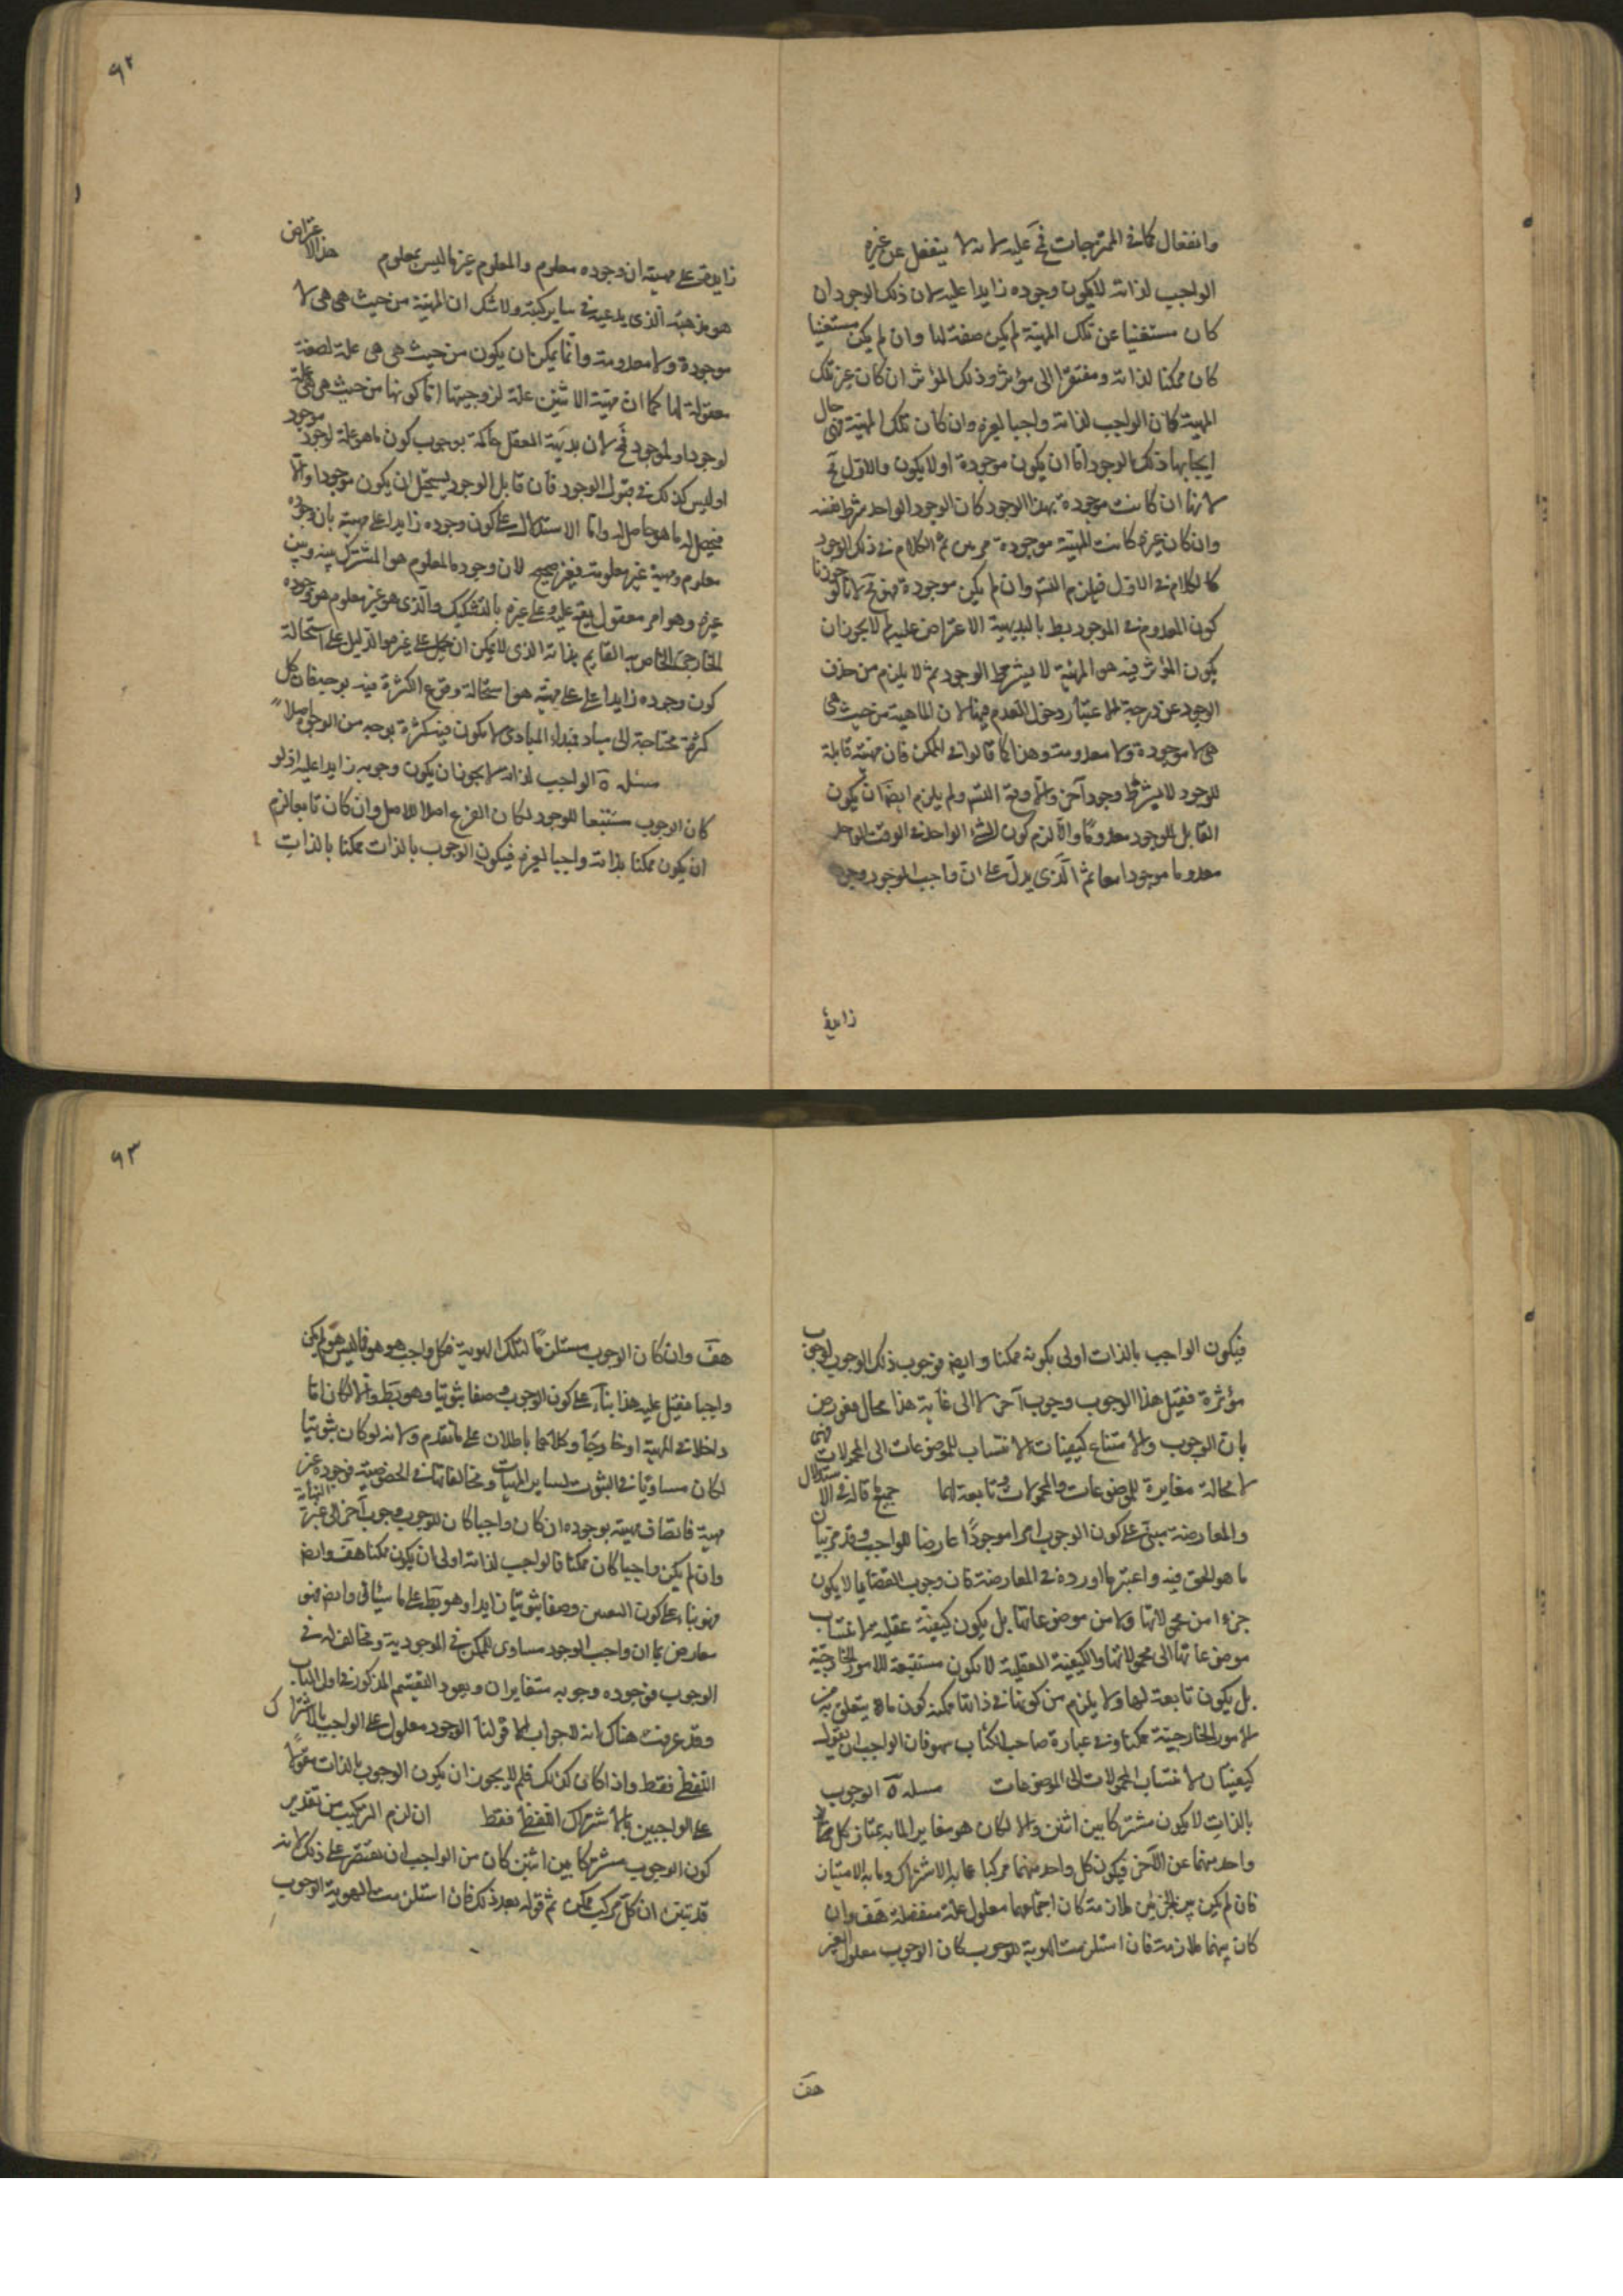 وانفعال كما فى الممتزجات فمح عليه لانه لا ينفعل عن غيره
الواجب لذاته لا يكون وجوده زايدا عليه لان ذلك الوجود ان
كان مستغنيا عن تلك المهية لم يكن صفة لها وان لم يكن مستغنيا
كان ممكنا لذاته ومفتقرا الى مؤثر وذلك المؤثر ان كان غير تلك
المهية كان الواجب لذاته واجبا لغيره وان كان تلك المهية فهى حال
ايجابها ذلك الوجود اما ان يكون موجودة او لا يكون والاول مح
لانها ان كانت موجودة بهذا الوجود كان الوجود الواحد شرط نفسه
وان كان غيره كانت المهية موجودة مرتين ثم الكلام فى ذلك الوجود
كالكلام فى الاول فيلزم التس وان لم يكن موجودة فهو مح لانا لو جوزنا
كون المعدوم فى الموجود بط بالبديهة الاعتراض عليه لم لا يجوز ان
يكون المؤثر فيه هو المهية لا بشرط الوجود ثم لا يلزم من حذف
الوجود عن درجة الاعتبار دخول العدم فيها لان الماهية من حيث هى
هى لا موجودة ولا معدومة وهذا كما قالوا فى الممكن فان مهيته قابلة
للوجود لا بشرط وجود آخر والا وقع التس ولم يلزم ايضا ان يكون
القابل للوجود معدوما والا لزم كون الشئ الواحد فى الوقت الواحد
معدوما موجودا معا ثم الذى يدل على ان واجب الوجود وجوده
زايدة
٩٢
زايدة على مهيته ان وجوده معلوم والمعلوم غير ما ليس بمعلوم هذا الاعتراض
هو مذهبه الذى يدعيه فى ساير كتبه ولا شك ان المهية من حيث هى هى لا
موجودة ولا معدومة وانما يمكن ان يكون من حيث هى هى علة لصفة
معقولة لها كما ان مهية الاثنين علة لزوجيتها اما كونها من حيث هى هى علة
لوجود او لموجود فمح لان بديهة العقل حاكمة بوجوب كون ما هو علة لوجود موجود
او ليس كذلك فى قبول الوجود فان قابل الوجود يستحيل ان يكون موجودا والا
فيحصل له ما هو حاصل له واما الاستدلال على كون وجوده زايدا على مهيته بان وجوده
معلوم ومهيته غير معلومة فغير صحيح لان وجوده المعلوم هو المشترك بينه وبين
غيره وهو امر معقول يقع عليه وعلى غيره بالتشكيك والذى هو غير معلوم هو وجوده
الخارجى الخاص به القايم بذاته الذى لا يمكن ان يحمل على غيره والدليل على استحالة
كون وجوده زايدا على مهيته هو استحالة وقوع الكثرة فيه بوجه فان كل
كثرة محتاجة الى مباد فمبدأ المبادى لا يكون فيه كثرة بوجه من الوجوه اصلا
مسئلة الواجب لذاته لا يجوز ان يكون وجوبه زايدا عليه اذ لو
كان الوجوب مستتبعا للوجود لكان الفرع اصلا للاصل وان كان تابعا لزم
ان يكون ممكنا بذاته واجبا لغيره فيكون الوجوب بالذات ممكنا بالذات
فيكون الواجب بالذات اولى بكونه ممكنا وايض فوجوب ذلك الوجوب لوجوب
مؤثره فقيل هذا الوجوب وجوب آخر لا الى غاية هذا محال معورض
بان الوجوب والامتناع كيفيات لانتساب الموضوعات الى المحمولات فهى
لا محالة مغايرة للموضوعات والمحمولات وتابعة لها جميع ما قاله فى الاستدلال
والمعارضة مبنى على كون الوجوب امرا موجودا عارضا للواجب وقد مر بيان
ما هو الحق فيه واعتبر ما اورده فى المعارضة فان وجوب القضايا لا يكون
جزءا من محمولاتها ولا من موضوعاتها بل يكون كيفية عقلية لانتساب
موضوعاتها الى محمولاتها والكيفية العقلية لا يكون مستتبعة للامور الخارجية
بل يكون تابعة لها ولا يلزم من كونها فى ذاتها ممكنة كون ما يتعلق به من
الامور الخارجية ممكنا وفى عبارة صاحب الكتاب سهو فان الواجب ان يقول
كيفيتان لانتساب المحمولات الى الموضوعات مسئلة الوجوب
بالذات لا يكون مشتركا بين اثنين والا لكان هو مغايرا لما به يمتاز كل
واحد منهما عن الآخر فيكون كل واحد منهما مركبا عما به الاشتراك وما به الامتياز
فان لم يكن بين الجزئين ملازمة كان اجتماعهما معلول علة منفصلة هف وان
كان بينهما ملازمة فان استلزمت الهوية الوجوب كان الوجوب معلول الغير
هف
٩٣
هف وان كان الوجوب مستلزما لتلك الهوية فكل واجب هو هو فما ليس هو لم يكن
واجبا فقيل عليه هذا بناء على كون الوجوب وصفا ثبوتيا وهو بط والا لكان اما
داخلا فى المهية او خارجا وكلاهما باطلان على ما تقدم ولانه لو كان ثبوتيا
لكان مساويا فى الثبوت لساير المهيات ومخالفا لها فى الخصوصية فوجوده غير
مهيته فاتصاف مهيته بوجوده ان كان واجبا كان للوجوب وجوب آخر الى غير النهاية
وان لم يكن واجبا كان ممكنا فالواجب لذاته اولى ان يكون ممكنا هف وايض
فهو بناء على كون التعين وصفا ثبوتيا زايدا وهو بط على ما سيأتى وايض فهو
معارض بما ان واجب الوجود مساوى الممكن فى الموجودية ومخالف له فى
الوجوب فوجوده ووجوبه متغايران ويعود التقسيم المذكور فى اول الباب
وقد عرفت هناك انه لا جواب الا قولنا الوجود مقول على الواجب بالاشتراك
اللفظى فقط واذا كان كذلك فلم لا يجوز ان يكون الوجوب بالذات مقولا
على الواجبين بالاشتراك اللفظى فقط ان لزم التركيب من تقدير
كون الوجوب مشتركا بين اثنين كان من الواجب ان يقتصر على ذلك لانه
قد تبين ان كل مركب ممكن ثم قوله بعد ذلك فان استلزمت الهوية الوجوب